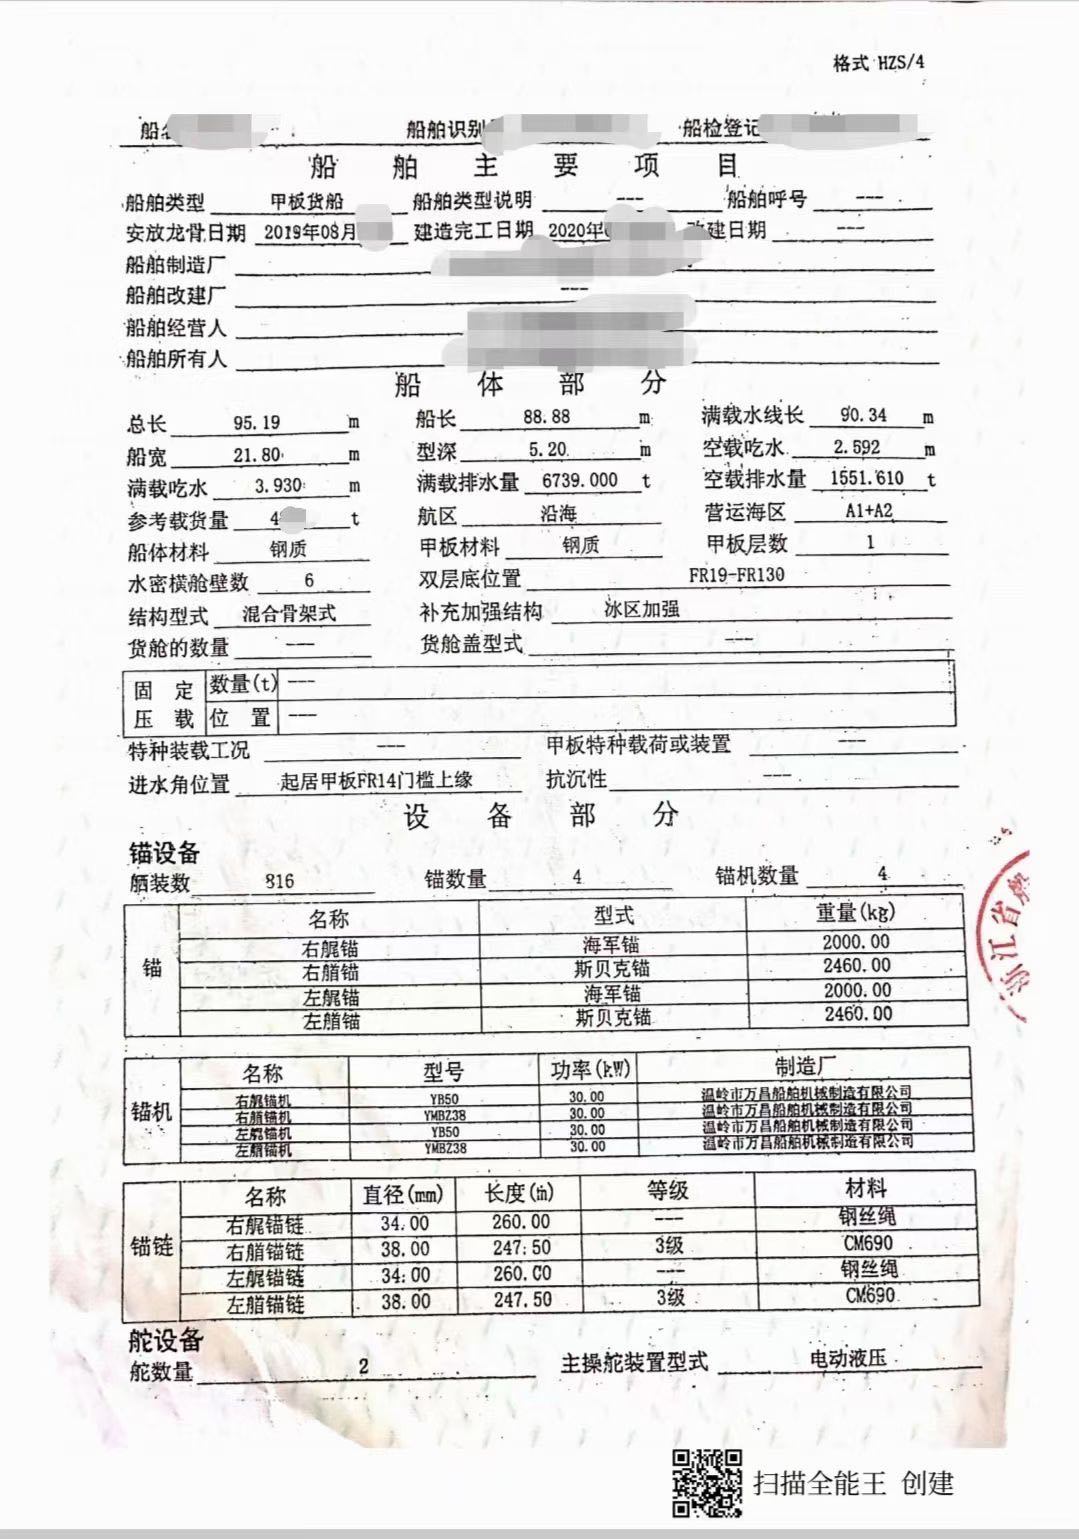 格式 HZS/4
船 船舶识别 船检登记
船舶主要项目
船舶类型 甲板货船 船舶类型说明 --- 船舶呼号 ---
安放龙骨日期 2019年08月 建造完工日期 2020年 建日期 ---
船舶制造厂
船舶改建厂 ---
船舶经营人
船舶所有人
船体部分
总长 95.19 m 船长 88.88 m 满载水线长 90.34 m
船宽 21.80 m 型深 5.20 m 空载吃水 2.592 m
满载吃水 3.930 m 满载排水量 6739.000 t 空载排水量 1551.610 t
参考载货量 4 t 航区 沿海 营运海区 A1+A2
船体材料 钢质 甲板材料 钢质 甲板层数 1
水密横舱壁数 6 双层底位置 FR19-FR130
结构型式 混合骨架式 补充加强结构 冰区加强
货舱的数量 --- 货舱盖型式 ---
固定 数量(t) ---
压载 位置 ---
特种装载工况 --- 甲板特种载荷或装置 ---
进水角位置 起居甲板FR14门槛上缘 抗沉性 ---
设备部分
锚设备
舾装数 816 锚数量 4 锚机数量 4
名称 型式 重量(kg)
锚
右艉锚 海军锚 2000.00
右艏锚 斯贝克锚 2460.00
左艉锚 海军锚 2000.00
左艏锚 斯贝克锚 2460.00
浙江省船
名称 型号 功率(kW) 制造厂
锚机
右艉锚机 YB50 30.00 温岭市万昌船舶机械制造有限公司
右艏锚机 YMBZ38 30.00 温岭市万昌船舶机械制造有限公司
左艉锚机 YB50 30.00 温岭市万昌船舶机械制造有限公司
左艏锚机 YMBZ38 30.00 温岭市万昌船舶机械制造有限公司
名称 直径(mm) 长度(m) 等级 材料
锚链
右艉锚链 34.00 260.00 --- 钢丝绳
右艏锚链 38.00 247.50 3级 CM690
左艉锚链 34.00 260.00 --- 钢丝绳
左艏锚链 38.00 247.50 3级 CM690
舵设备
舵数量 2 主操舵装置型式 电动液压
扫描全能王 创建